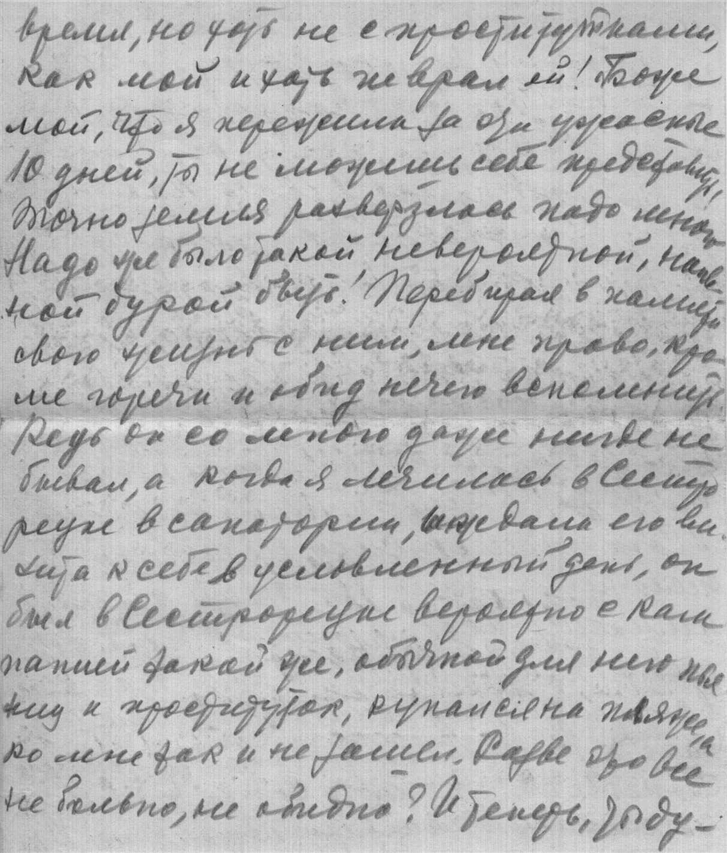 время, но хоть не с проститутками,
как мой и хоть не врал ей! Боже
мой, что я пережила за эти ужасные
10 дней, ты не можешь себе представить!
Точно земля разверзлась надо мною
Надо же было такой невероятной, наив
ной дурой быть! Перебирая в памяти
свою жизнь с ним, мне право, кро
ме горечи и обид нечего вспомнить
Ведь он со мною даже нигде не
бывал, а когда я лечилась в Сестро
рецке в санатории, и ждала его ви
зита к себе в условленный день, он
был в Сестрорецке вероятно с ком
панией такой же, обычной для него пья
ниц и проституток, купался на пляже, а
ко мне так и не зашел. Разве это все
не больно, не обидно? И теперь, ты ду-